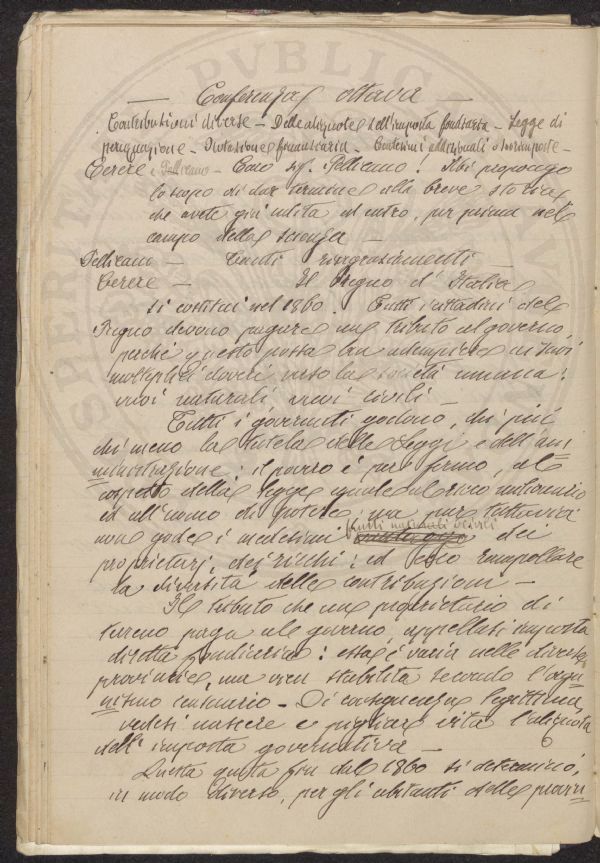 — Conferenza ottava —
Contribuzioni diverse — Delle aliquote dell'imposta fondiaria — Legge di
perequazione — finanziaria — Centesimi addizionali e sovrimposte —
Cerere e Pellicano — Caro sig. Pellicano! Mi propongo
lo scopo di dar termine alla breve storia,
che avete già udita ed entro, per prima nel
campo della scienza —
Pellicano — Tanti ringraziamenti —
Cerere — Il Regno d'Italia
si costituì nel 1860. Tutti i cittadini del
Regno devono pagare un tributo al governo,
perchè questo possa ben adempiere ai suoi
molteplici doveri verso la società umana:
naturali, civili —
Tutti i governati godono, chi più
chi meno la tutela delle Leggi e dell'am
ministrazione; il povero è per fermo, al
cospetto della legge eguale al ricco
ed all'uomo di potere; ma pur tuttavia
non gode i medesimi frutti naturali e civili dei
proprietarj, dei ricchi: ed ecco rampollare
la diversità delle contribuzioni —
Il tributo che un proprietario di
terreno paga al governo, appellasi imposta
diretta fondiaria: essa è varia nelle diverse
provincie, ma vien stabilita secondo l'orga
nismo censuario — Di conseguenza legittima,
vedesi nascere e pigliare vita l'aliquota
dell'imposta governativa —
Questa quota fin dal 1860 si determinò,
in modo diverso, per gli abitanti delle provin